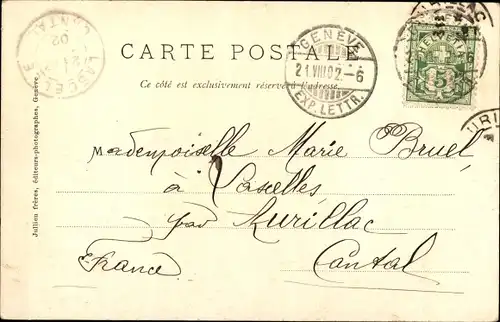 CARTE POSTALE
Ce côté est exclusivement réservé à l'adresse.
GENÈVE
21.VIII.02.–6
EXP. LETTR.
LASCELLE
CANTAL
21
02
5
Mademoiselle Marie Bruel
à Lascelles
par Aurillac
Cantal
France
Jullien frères, éditeurs-photographes, Genève.